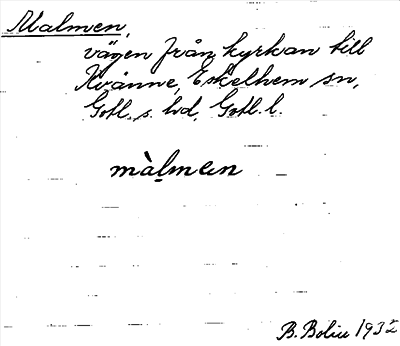 Malmen,
vägen från kyrkan till
Kvänne, Eskelhem sn,
Gotl. s. hd, Gotl. l.
màlmen
B. Bolin 1932